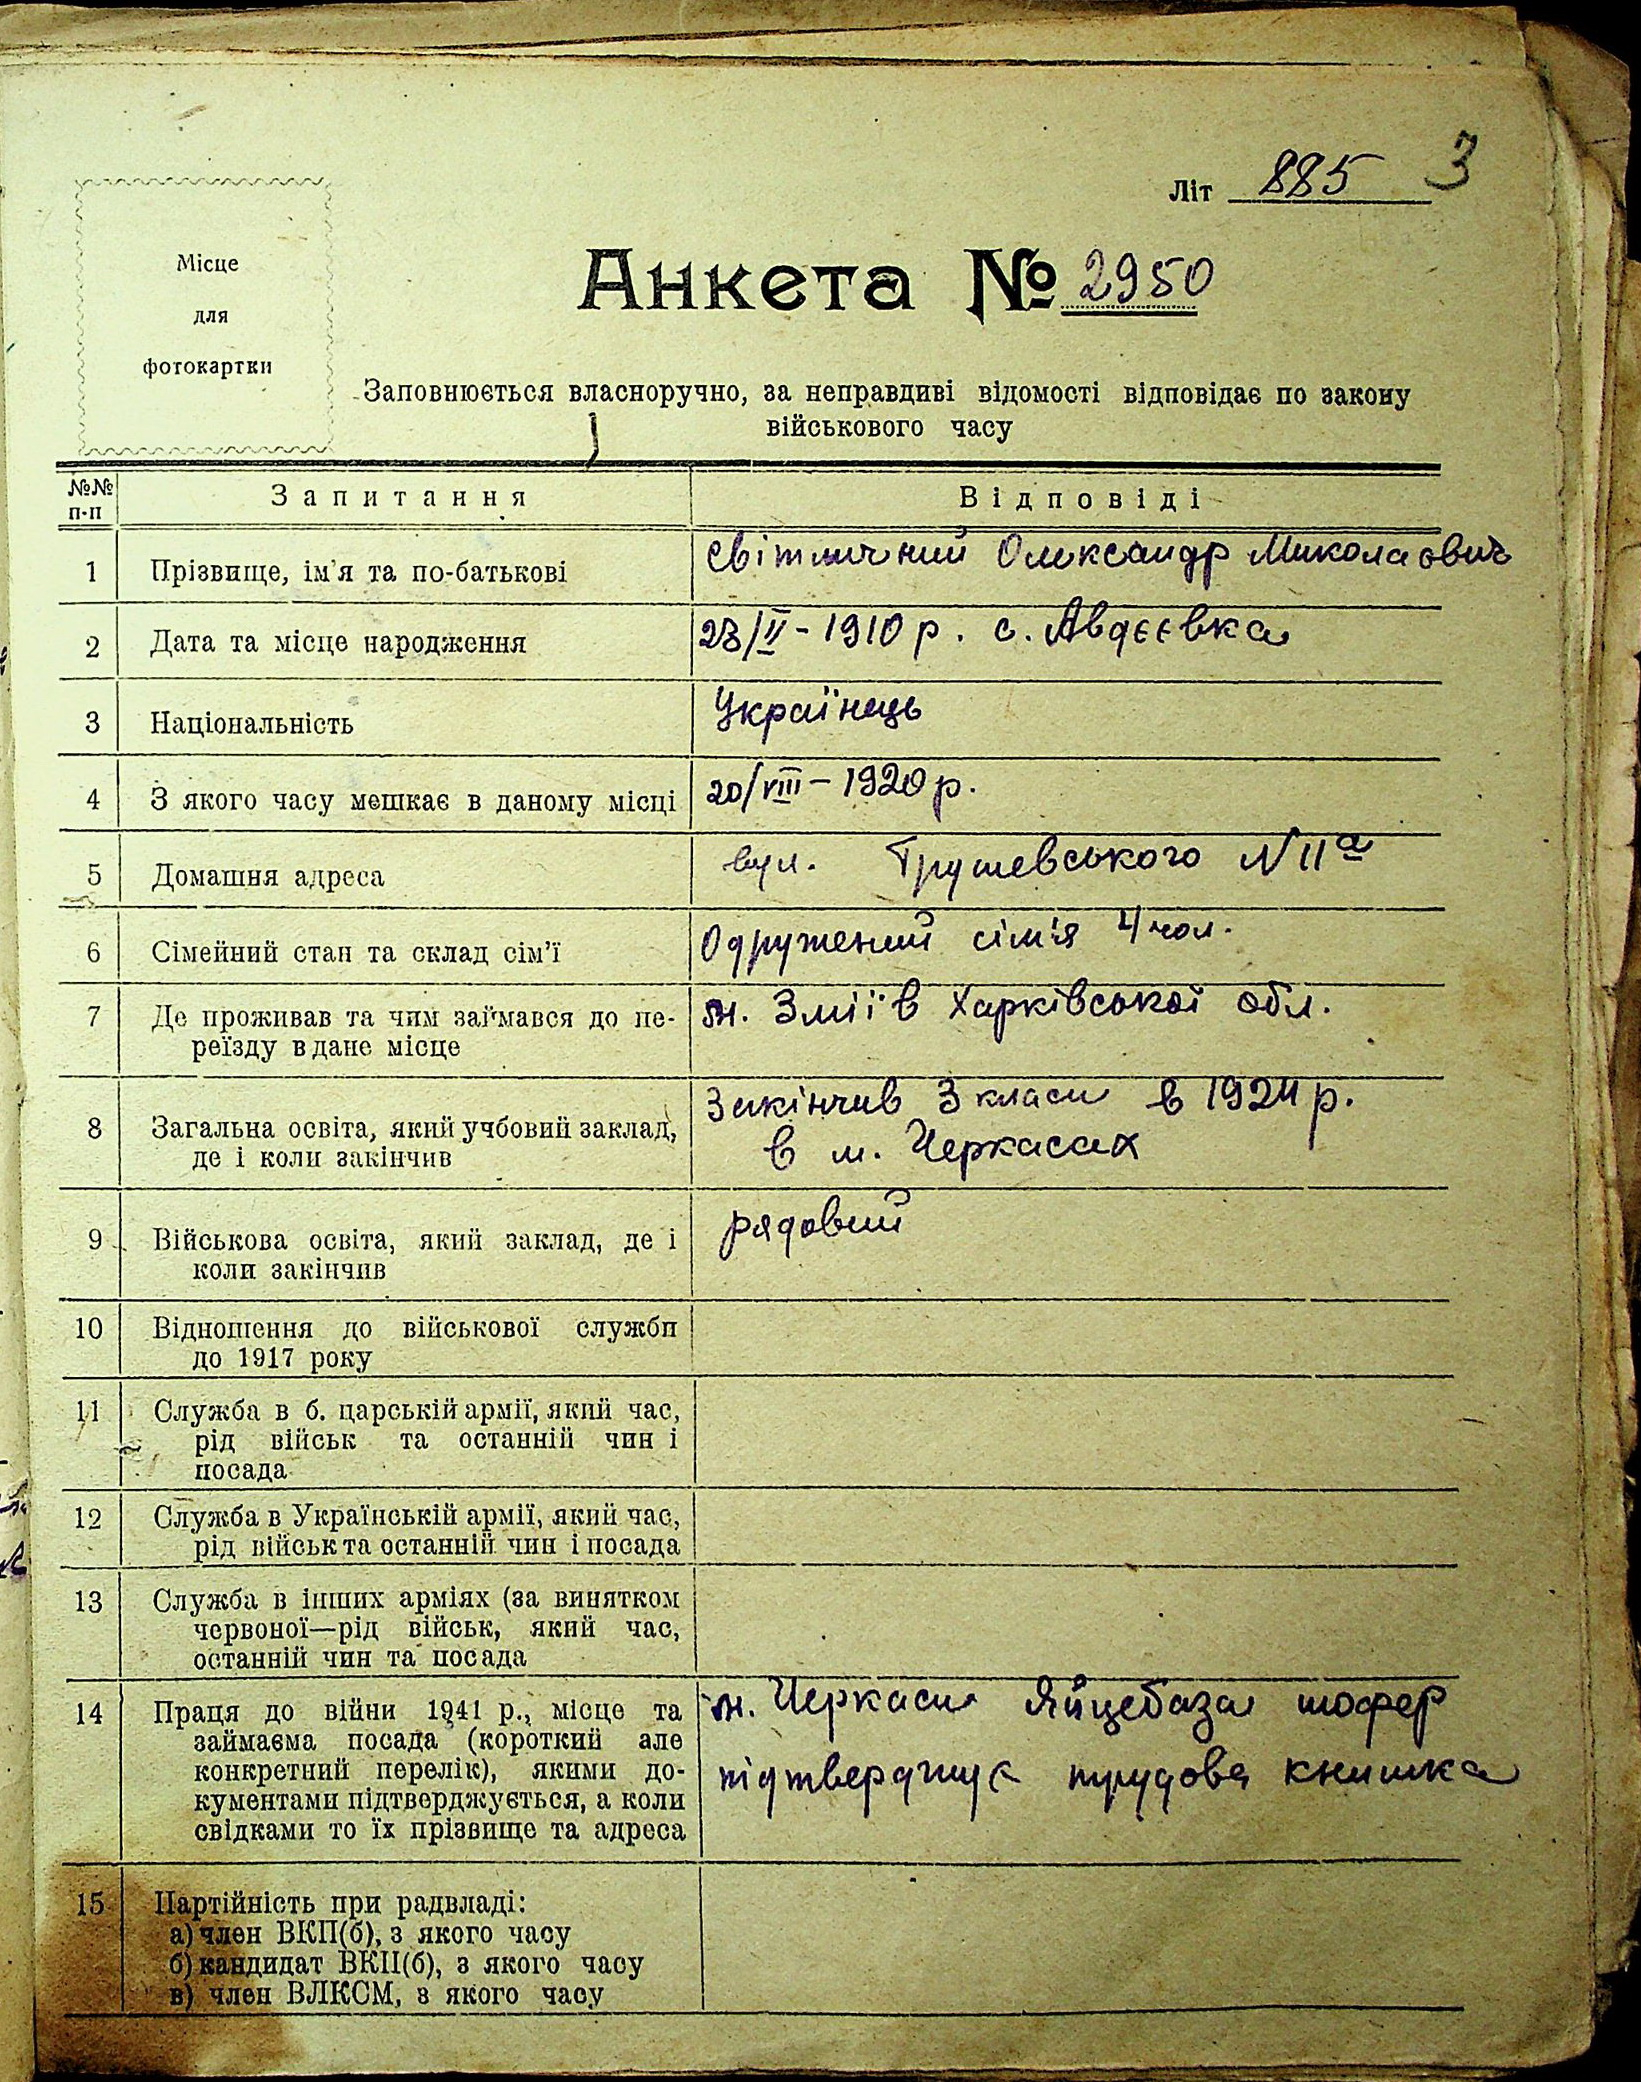 Літ 885 3
Місце
для
фотокартки
Анкета № 2950
Заповнюється власноручно, за неправдиві відомості відповідає по закону
військового часу
№№ п-п Запитання Відповіді
1 Прізвище, ім'я та по-батькові Світличний Олександр Миколаович
2 Дата та місце народження 23/II - 1910 р. с. Авдєєвка
3 Національність Українець
4 З якого часу мешкає в даному місці 20/VIII - 1920 р.
5 Домашня адреса вул. Грушевського N 11а
6 Сімейний стан та склад сім'ї Одружений сім'я 4 чол.
7 Де проживав та чим займався до пе- м. Зміїв Харківської обл.
реїзду в дане місце
8 Загальна освіта, який учбовий заклад, Закінчив 3 класи в 1924 р.
де і коли закінчив в м. Черкасах
9 Військова освіта, який заклад, де і рядовий
коли закінчив
10 Відношення до військової служби
до 1917 року
11 Служба в б. царській армії, який час,
рід військ та останній чин і
посада
12 Служба в Українській армії, який час,
рід військ та останній чин і посада
13 Служба в інших арміях (за винятком
червоної—рід військ, який час,
останній чин та посада
14 Праця до війни 1941 р., місце та м. Черкаси Яйцебаза шофер
займаєма посада (короткий але
конкретний перелік), якими до- підтверджує трудова книшка
кументами підтверджується, а коли
свідками то їх прізвище та адреса
15 Партійність при радвладі:
а) член ВКП(б), з якого часу
б) кандидат ВКП(б), з якого часу
в) член ВЛКСМ, з якого часу